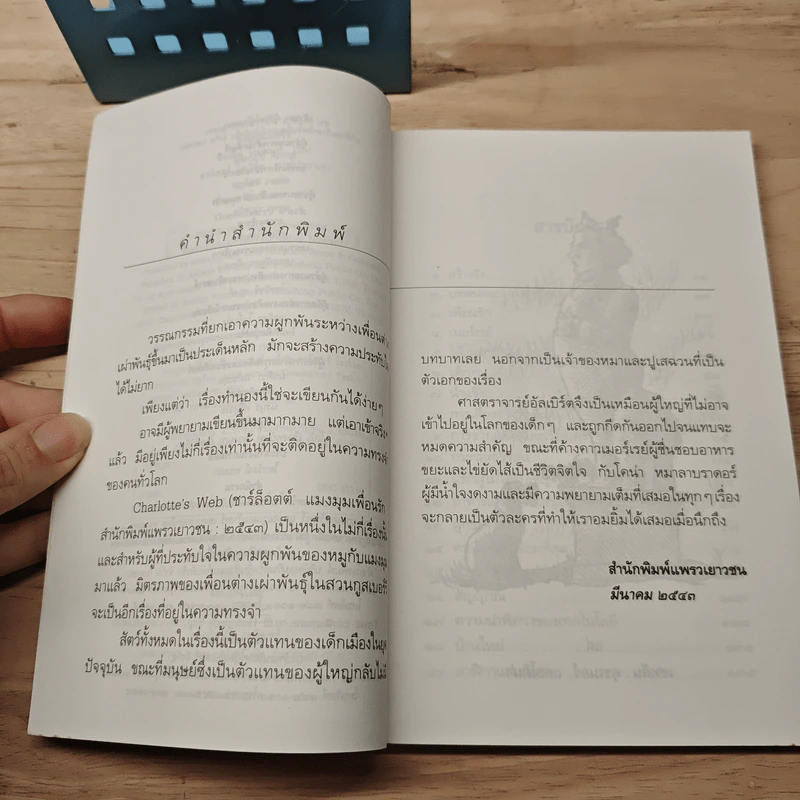 คำนำสำนักพิมพ์
วรรณกรรมที่ยกเอาความผูกพันระหว่างเพื่อนต่าง
เผ่าพันธุ์ขึ้นมาเป็นประเด็นหลัก มักจะสร้างความประทับใจ
ได้ไม่ยาก
เพียงแต่ว่า เรื่องทำนองนี้ใช่จะเขียนกันได้ง่ายๆ
อาจมีผู้พยายามเขียนขึ้นมามากมาย แต่เอาเข้าจริงๆ
แล้ว มีอยู่เพียงไม่กี่เรื่องเท่านั้นที่จะติดอยู่ในความทรงจำ
ของคนทั่วโลก
Charlotte's Web (ชาร์ล็อตต์ แมงมุมเพื่อนรัก
สำนักพิมพ์แพรวเยาวชน : ๒๕๔๓) เป็นหนึ่งในไม่กี่เรื่องนั้น
และสำหรับผู้ที่ประทับใจในความผูกพันของหมูกับแมงมุม
มาแล้ว มิตรภาพของเพื่อนต่างเผ่าพันธุ์ในสวนกูสเบอร์รี
จะเป็นอีกเรื่องที่อยู่ในความทรงจำ
สัตว์ทั้งหมดในเรื่องนี้เป็นตัวแทนของเด็กเมืองในยุค
ปัจจุบัน ขณะที่มนุษย์ซึ่งเป็นตัวแทนของผู้ใหญ่กลับไม่มี
บทบาทเลย นอกจากเป็นเจ้าของหมาและปูเสฉวนที่เป็น
ตัวเอกของเรื่อง
ศาสตราจารย์อัลเบิร์ตจึงเป็นเหมือนผู้ใหญ่ที่ไม่อาจ
เข้าไปอยู่ในโลกของเด็กๆ และถูกกีดกันออกไปจนแทบจะ
หมดความสำคัญ ขณะที่ค้างคาวเมอร์เรย์ผู้ชื่นชอบอาหาร
ขยะและไข่ยัดไส้เป็นชีวิตจิตใจ กับโคน่า หมาลาบราดอร์
ผู้มีน้ำใจงดงามและมีความพยายามเต็มที่เสมอในทุกๆ เรื่อง
จะกลายเป็นตัวละครที่ทำให้เราอมยิ้มได้เสมอเมื่อนึกถึง
สำนักพิมพ์แพรวเยาวชน
มีนาคม ๒๕๔๓